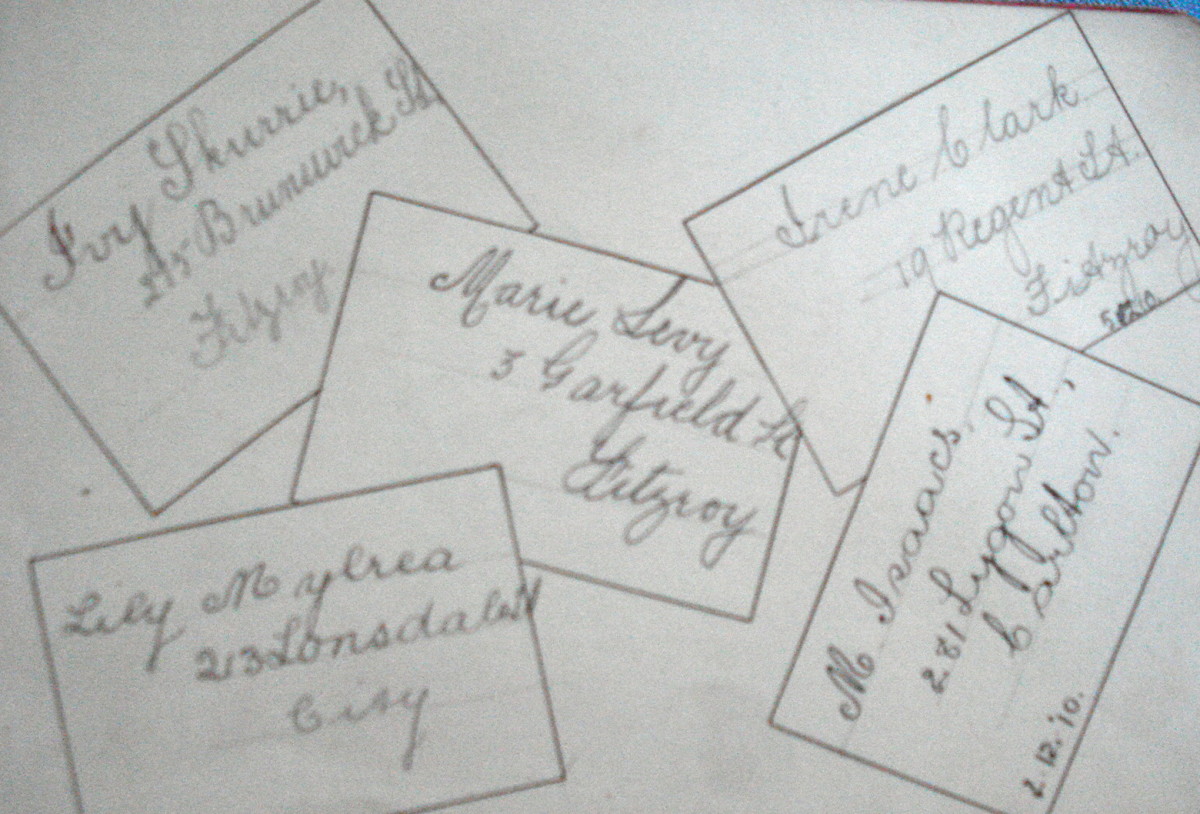 Ivy Skurrie,
Brunswick St.
Fitzroy.
Marie Levy
3 Garfield St
Fitzroy
Irene Clark
19 Regent St.
Fitzroy
Lily Mylrea
213 Lonsdale St
City
M. Isaacs.
281 Lygon St.,
Carlton.
2.12.'10.